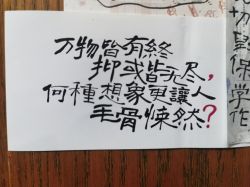 万物皆有終
抑或皆无尽，
何種想象更讓人
毛骨悚然？